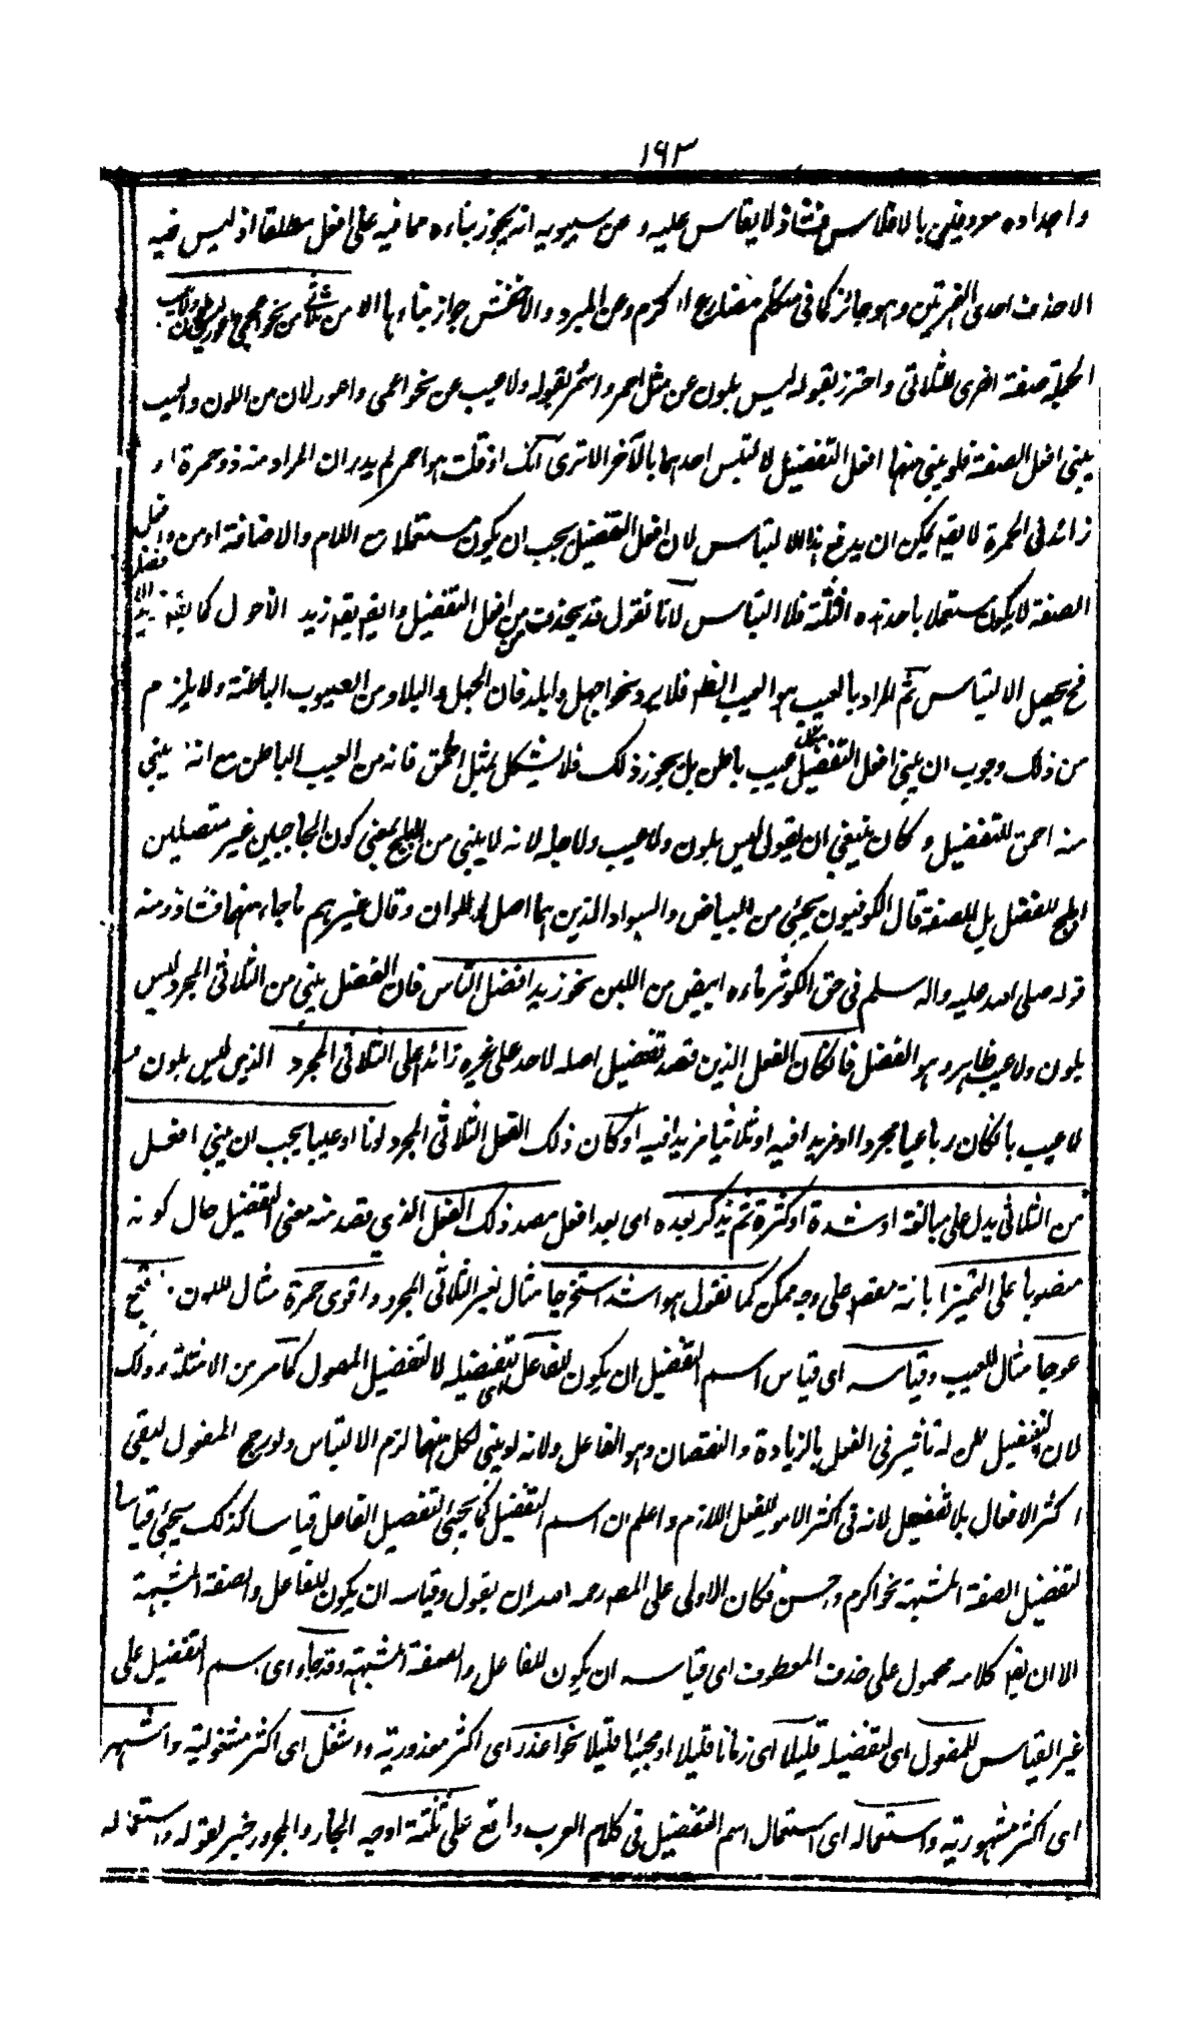 ١٩٣
واجداده معروفين بالافلاس فشاذ لا يقاس عليه وعن سيبويه انه يجوز بناءه مما فيه على افعل مطلقا اذ ليس فيه
الا حذف احدى الهمزتين وهو جائز كما فى متكلم مضارع اكرم وعن المبرد والاخفش جواز بناءها الا من ثلاثى
الجملة صفة اخرى للثلاثى واحترز بقوله ليس بلون عن مثل احمر واسمر بقوله ولا عيب عن نحو اعمى واعور لان من اللون والعيب
يبنى افعل الصفة فلو بنى منها افعل التفضيل لالتبس احدهما بالآخر الا ترى انك اذ قلت هو احمر لم يدر ان المراد منه ذو حمرة او
زائد فى الحمرة لا يقم يمكن ان يدفع هذا الالتباس لان افعل التفضيل يجب ان يكون مستعملا مع اللام والاضافة او من وافعل
الصفة لا يكون مستعملا باحد هذه الثلثة فلا التباس لانا نقول قد يحذف من من افعل التفضيل وايضا يقم زيد الاحول كما يقم
فح يحصل الالتباس ثم المراد بالعيب هو العيب الظ فلا يرد نحو اجهل وابلد فان الجهل والبلاد من العيوب الباطنة ولا يلزم م
من ذلك وجوب ان يبنى افعل التفضيل عيب باطن بل يجوز ذلك فلا يشكل بمثل احمق فانه من العيب الباطن مع انه يبنى
منه احمق للتفضيل وكان ينبغى ان يقول ليس بلون ولا عيب ولا حلية لانه لا يبنى من البلج بمعنى كون الحاجبين غير متصلين
ابلج للتفضل بل للصفة قال الكوفيون يجئ من البياض والسواد الذين هما اصل الالوان وقال غيرهم ما جاء منها فشاذ ومنه
قوله صلى الله عليه واله سلم فى حق الكوثر ماءه ابيض من اللبن نحو زيد افضل الناس فان افضل يبنى من الثلاثى المجرد ليس
بلون ولا عيب ظاهر وهو الفضل فان كان الفعل الذين قصد تفضيل اصله لاحد على غيره زائدا على الثلاثى المجرد الذين ليس بلون م
لا عيب بان كان رباعيا مجردا او مزيدا فيه او ثلاثيا مزيدا فيه او كان ذلك الفعل الثلاثى المجرد لونا او عيبا يجب ان يبنى افعل
من الثلاثى يدل على مبالغة او شدة او كثرة ثم يذكر بعده اى بعد افعل مصدر ذلك الفعل الذى يقصد منه معنى التفضيل حال كونه
منصوبا على التميز كما نقول هو اشد استخراجا مثال لغير الثلاثى المجرد واقوى حمرة مثال للون واقبح
عوجا مثال للعيب وقياسه اى قياس اسم التفضيل ان يكون للفاعل اى لتفضيله لا لتفضيل المفعول كما مر من الامثلة وذلك
لان التفضيل لمن له تاثير فى الفعل بالزيادة والنقصان وهو الفاعل ولانه لو بنى لكل منهما لزم الالتباس ولو رجح المفعول لبقى
اكثر الافعال بلا تفضيل لانه فى اكثر الامر للفعل اللازم واعلم ان اسم التفضيل كما يجئ لتفضيل الفاعل قياسا كذلك يجئ قياسا
لتفضيل الصفة المشبهة نحو اكرم واحسن فكان الاولى على المص رحمه الله ان يقول وقياسه ان يكون للفاعل والصفة المشبهة
الا ان يقم كلامه محمول على حذف المعطوف اى قياسه ان يكون للفاعل والصفة المشبهة وقد جاء اى اسم التفضيل على
غير القياس للمفعول اى لتفضيله قليلا اى زمانا قليلا او مجيئا قليلا نحو اعذر اى اكثر معذورية واشغل اى اكثر مشغولية واشهر
اى اكثر مشهورية واستعماله اى استعمال اسم التفضيل فى كلام العرب واقع على ثلثة اوجه الجار والمجرور خبر لقوله واستعماله